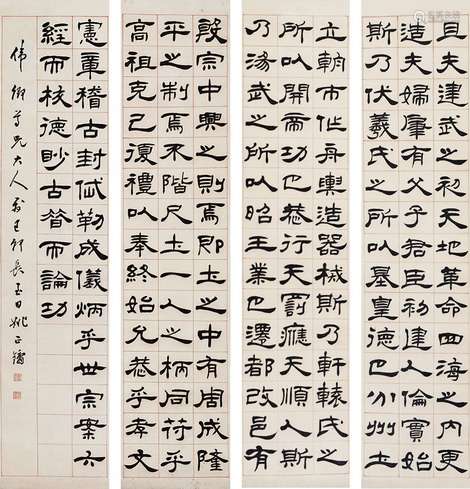 且夫建武之初天地革命四海之內更
造夫婦肇有父子君臣初建人倫實始
斯乃伏羲氏之所以基皇德也分州土
立朝市作舟輿造器械斯乃軒轅氏之
所以開帝功也恭行天罰應天順人斯
乃湯武之所以昭王業也遷都改邑有
殷宗中興之則焉即土之中有周成隆
平之制焉不階尺土一人之柄同符乎
高祖克己復禮以奉終始允恭乎孝文
憲章稽古封岱勒成儀炳乎世宗案六
經而核德眇古昔而論功
偉卿尊兄大人屬己卯長至日姚正鏞